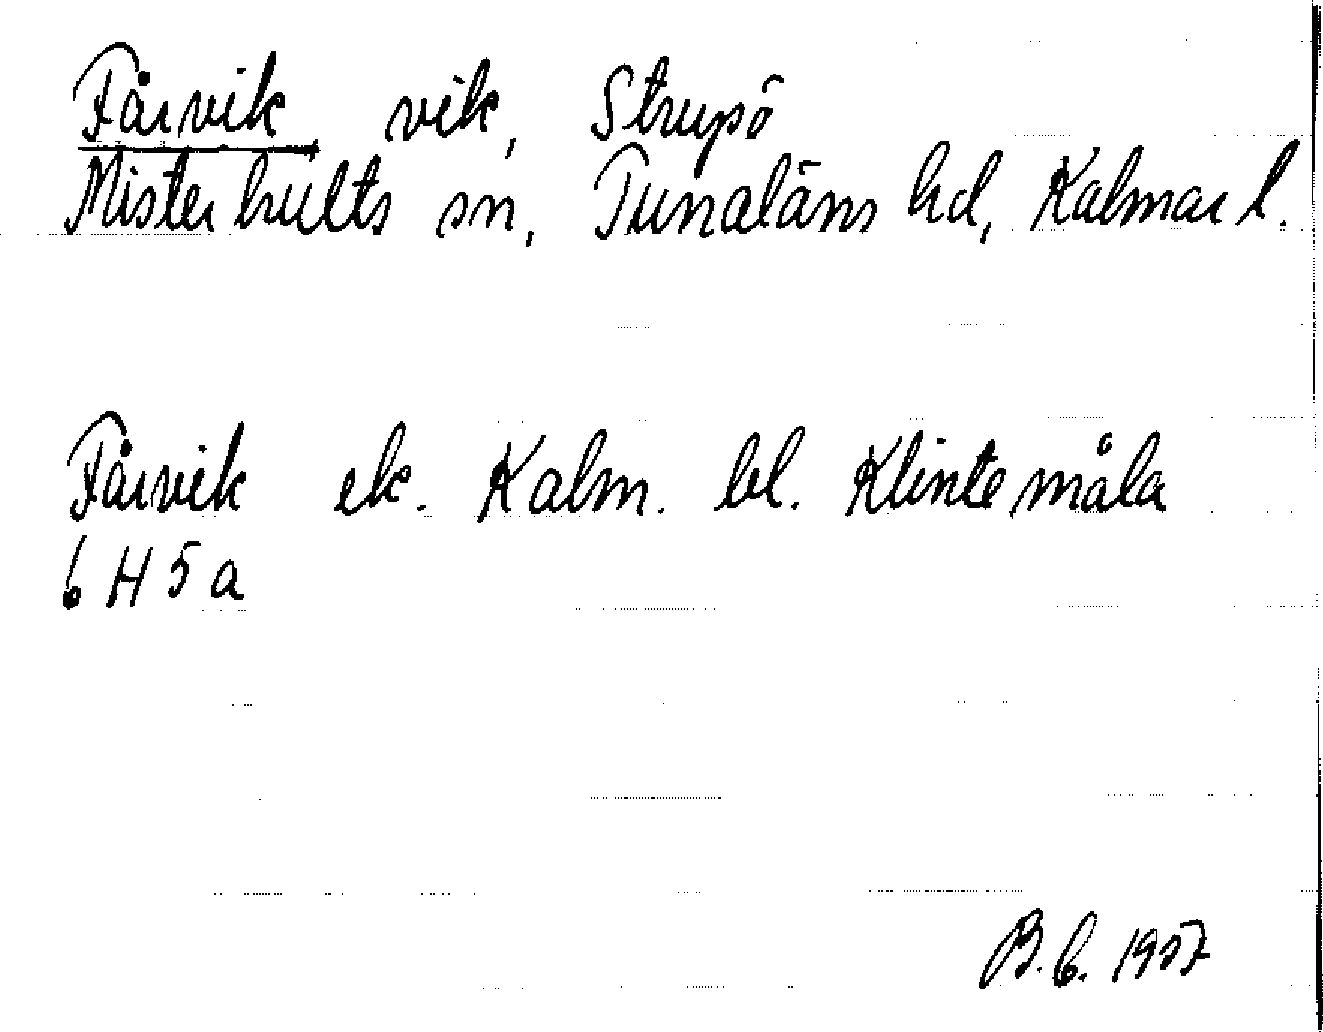 Fårvik vik, Strupö
Misterhults sn, Tunaläns hd, Kalmar l.
Fårvik ek. Kalm. bl. Klintemåla
6 H 5 a
B.G. 1957